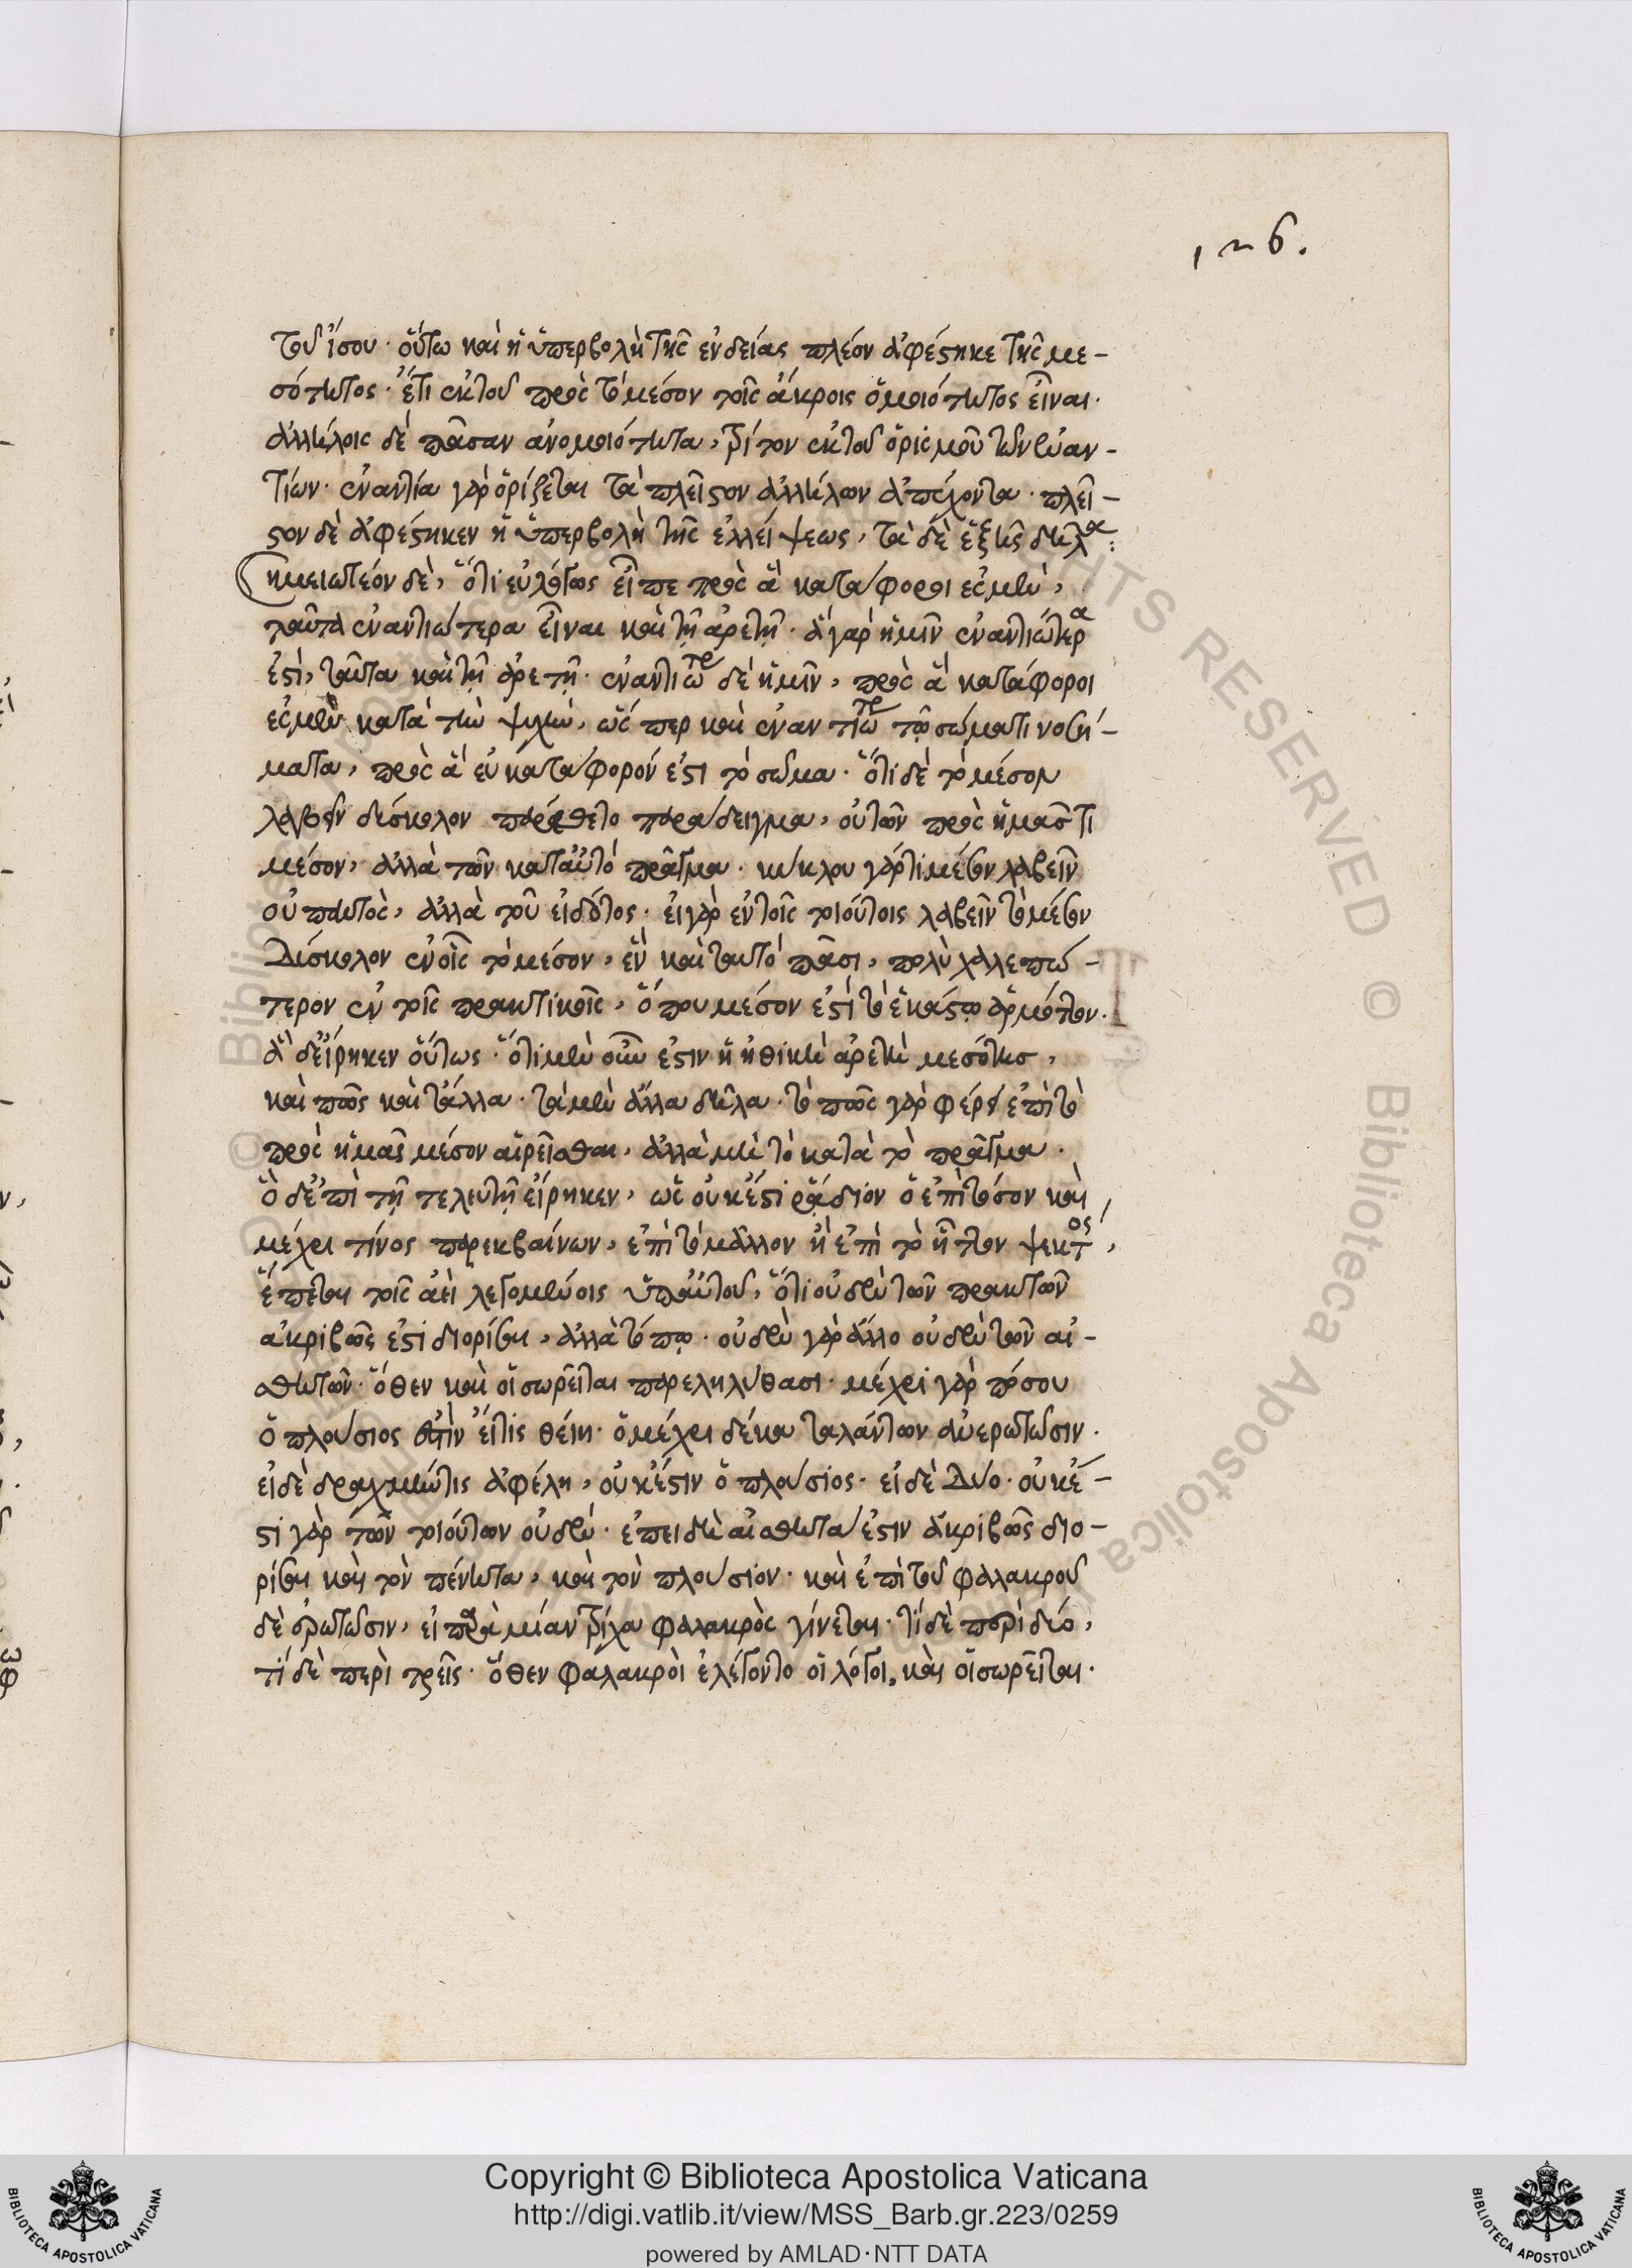 126.
τοῦ ἴσου· οὕτω καὶ ἡ ὑπερβολὴ τῆς ἐνδείας πλέον ἀφέστηκε τῆς με-
σότητος· ἔτι ἐκ τοῦ πρὸς τὸ μέσον τοῖς ἄκροις ὁμοιότητος εἶναι·
ἀλλήλοις δὲ πᾶσαν ἀνομοιότητα, τρίτον ἐκ τοῦ ὁρισμοῦ τῶν ἐναν-
τίων· ἐναντία γὰρ ὁρίζεται τὰ πλεῖστον ἀλλήλων ἀπέχοντα· πλεῖ-
στον δὲ ἀφέστηκεν ἡ ὑπερβολὴ τῆς ἐλλείψεως, τὰ δὲ ἑξῆς δῆλα:
Σημειωτέον δὲ, ὅτι εὐλόγως εἶπε πρὸς ἃ κατάφοροι ἐσμὲν,
ταῦτα ἐναντιώτερα εἶναι καὶ τῇ ἀρετῇ· ἃ γὰρ ἡμῖν ἐναντιώτερα
ἐστὶ, ταῦτα καὶ τῇ ἀρετῇ· ἐναντιώτερα δὲ ἡμῖν, πρὸς ἃ κατάφοροι
ἐσμὲν κατὰ τὴν ψυχὴν, ὥσπερ καὶ ἐναντιώτερα τῷ σώματι νοσή-
ματα, πρὸς ἃ εὐκατάφορόν ἐστι τὸ σῶμα· ὅτι δὲ τὸ μέσον
λαβεῖν δύσκολον παρέθετο παράδειγμα, οὐ τῶν πρὸς ἡμᾶς τι
μέσον, ἀλλὰ τῶν κατ' αὐτὸ πρᾶγμα· κύκλου γάρ τι μέσον λαβεῖν
οὐ παντὸς, ἀλλὰ τοῦ εἰδότος· εἰ γὰρ ἐν τοῖς τοιούτοις λαβεῖν τὸ μέσον
δύσκολον ἐν οἷς τὸ μέσον, ἓν καὶ ταυτὸ πᾶσι, πολὺ χαλεπώ-
τερον ἐν τοῖς πρακτικοῖς, ὅπου μέσον ἐστὶ τὸ ἑκάστῳ ἁρμόττον.
ἃ δ' εἴρηκεν οὕτως· ὅτι μὲν οὖν ἐστιν ἡ ἠθικὴ ἀρετὴ μεσότης,
καὶ πῶς καὶ τἄλλα· τὰ μὲν ἄλλα δῆλα· τὸ πῶς γὰρ φέρει ἐπὶ τὸ
πρὸς ἡμᾶς μέσον αἱρεῖσθαι, ἀλλὰ μὴ τὸ κατὰ τὸ πρᾶγμα·
ὃ δ' ἐπὶ τῇ τελευτῇ εἴρηκεν, ὡς οὐκ ἔστι ῥᾴδιον ὁ ἐπὶ πόσον καὶ
μέχρι τίνος παρεκβαίνων, ἐπὶ τὸ μᾶλλον ἢ ἐπὶ τὸ ἧττον ψεκτὸς,
ἕπεται τοῖς ἀεὶ λεγομένοις ὑπ' αὐτοῦ, ὅτι οὐδὲν τῶν πρακτῶν
ἀκριβῶς ἐστι διορίσαι, ἀλλὰ τύπῳ· οὐδὲν γὰρ ἄλλο οὐδὲν τῶν αἰ-
σθητῶν· ὅθεν καὶ οἱ σωρεῖται παρεληλύθασι· μέχρι γὰρ πόσου
ὁ πλούσιος ἐστὶν εἴ τις θείη· ὁ μέχρι δέκα ταλάντων ἀνερωτῶσιν.
εἰ δὲ δραχμήν τις ἀφέλῃ, οὐκ ἔστιν ὁ πλούσιος· εἰ δὲ δύο· οὐκ ἔ-
στι γὰρ τῶν τοιούτων οὐδὲν· ἐπειδὴ αἰσθητὰ ἐστιν ἀκριβῶς διο-
ρίσαι καὶ τὸν πένητα, καὶ τὸν πλούσιον· καὶ ἐπὶ τοῦ φαλακροῦ
δὲ ἐρωτῶσιν, εἰ παρὰ μίαν τρίχα φαλακρὸς γίνεται· τί δὲ περὶ δύο,
τί δὲ περὶ τρεῖς· ὅθεν φαλακροὶ ἐλέγοντο οἱ λόγοι, καὶ οἱ σωρεῖται.
Copyright © Biblioteca Apostolica Vaticana
http://digi.vatlib.it/view/MSS_Barb.gr.223/0259
powered by AMLAD·NTT DATA
BIBLIOTECA APOSTOLICA VATICANA
BIBLIOTECA APOSTOLICA VATICANA